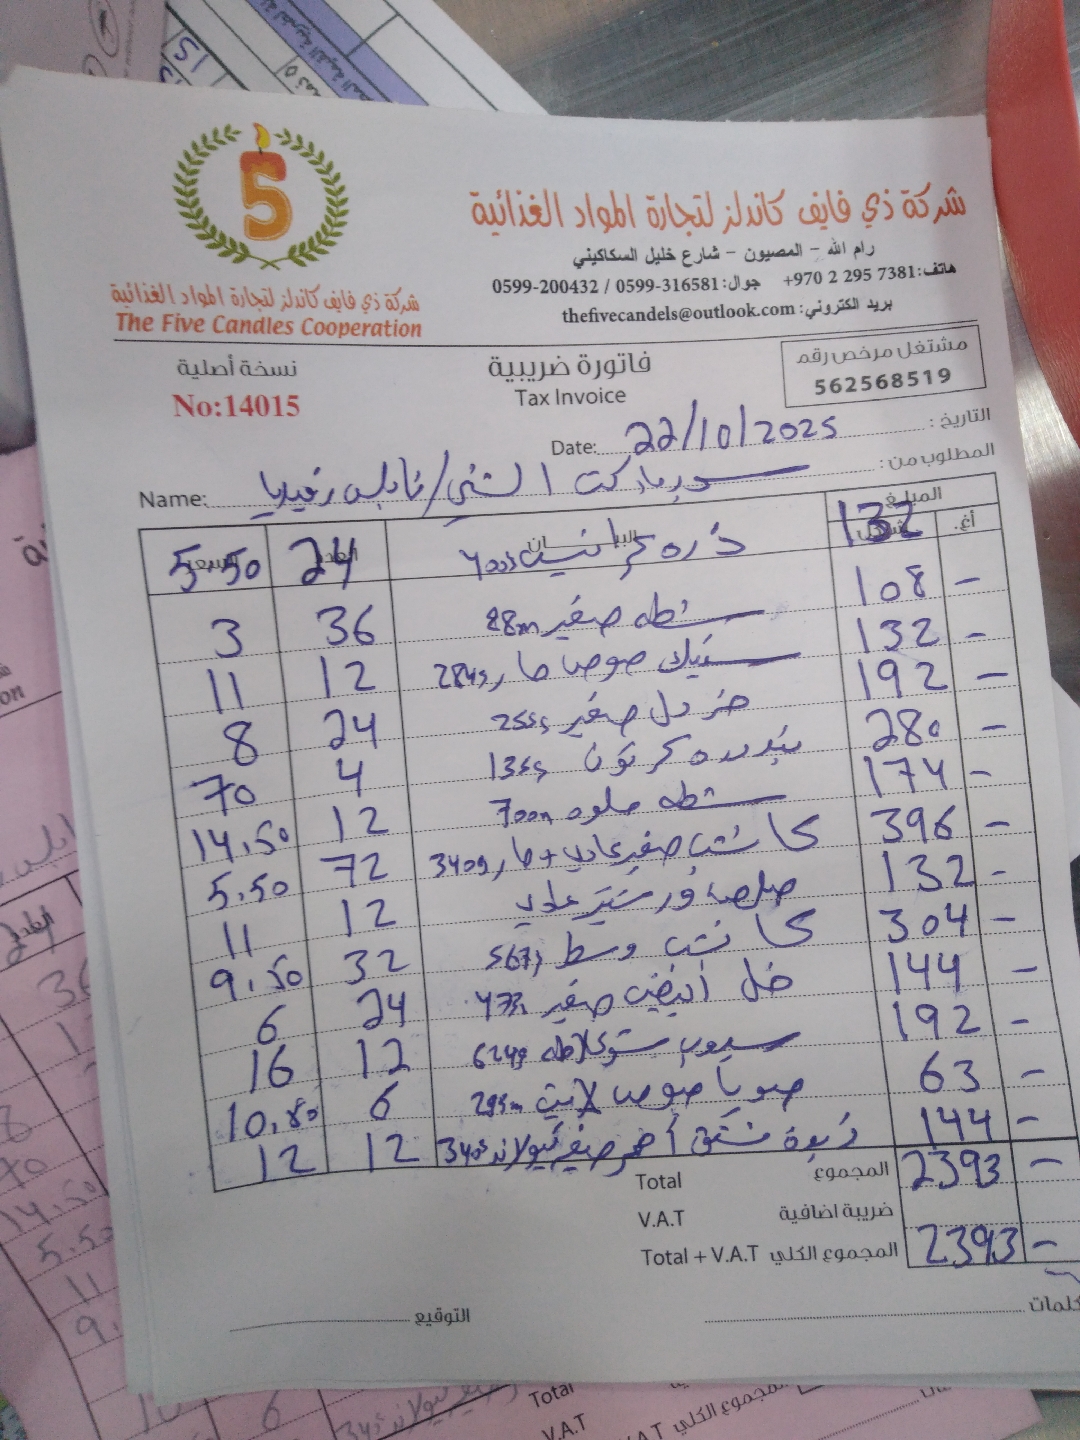 5
شركة ذي فايف كاندلز لتجارة المواد الغذائية
The Five Candles Cooperation
شركة ذي فايف كاندلز لتجارة المواد الغذائية
رام الله - المصيون - شارع خليل السكاكيني
هاتف: +970 2 295 7381 جوال: 0599-316581 / 0599-200432
بريد الكتروني: thefivecandels@outlook.com
مشتغل مرخص رقم
562568519
فاتورة ضريبية
Tax Invoice
نسخة أصلية
No:14015
التاريخ: 22/10/2025 Date:
المطلوب من: سوبر ماركت الشني/نابلس رفيديا Name:
أغ. المبلغ البيـــان العدد السعر
132 ذره 400g 24 5.50
108 - شطه صغير 88m 36 3
132 - ستيك صوص حار 284g 12 11
192 - خردل صغير 255g 24 8
280 - كرتون 135g 4 70
174 - شطه حلوه 700m 12 14.50
396 - كاتشب صغير عادي + حار 340g 72 5.50
132 - صلصة ورستر عادي 12 11
304 - كاتشب وسط 567g 32 9.50
144 - خل ابيض صغير 473m 24 6
192 - سيروب شوكلاطه 624g 12 16
63 - صويا صوص لايت 295m 6 10.80
144 - زبدة فستق صغير 340g 12 12
2393 - المجموع Total
ضريبة اضافية V.A.T
2393 - المجموع الكلي Total + V.A.T
كلمات
التوقيع